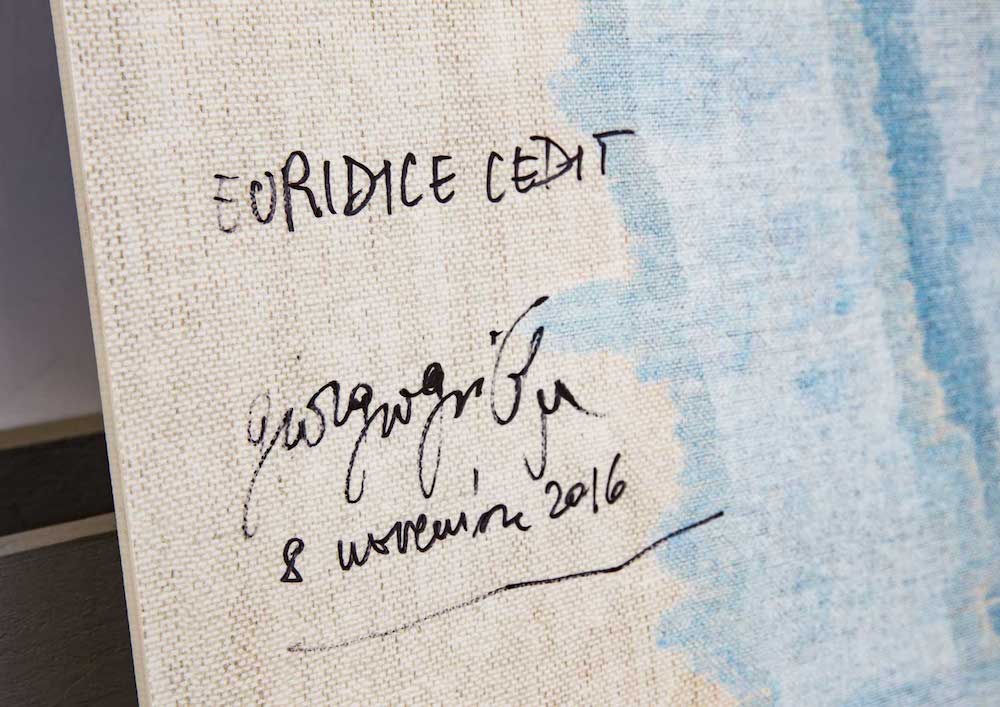 EURIDICE CEDIT
giorgio
8 novembre 2016